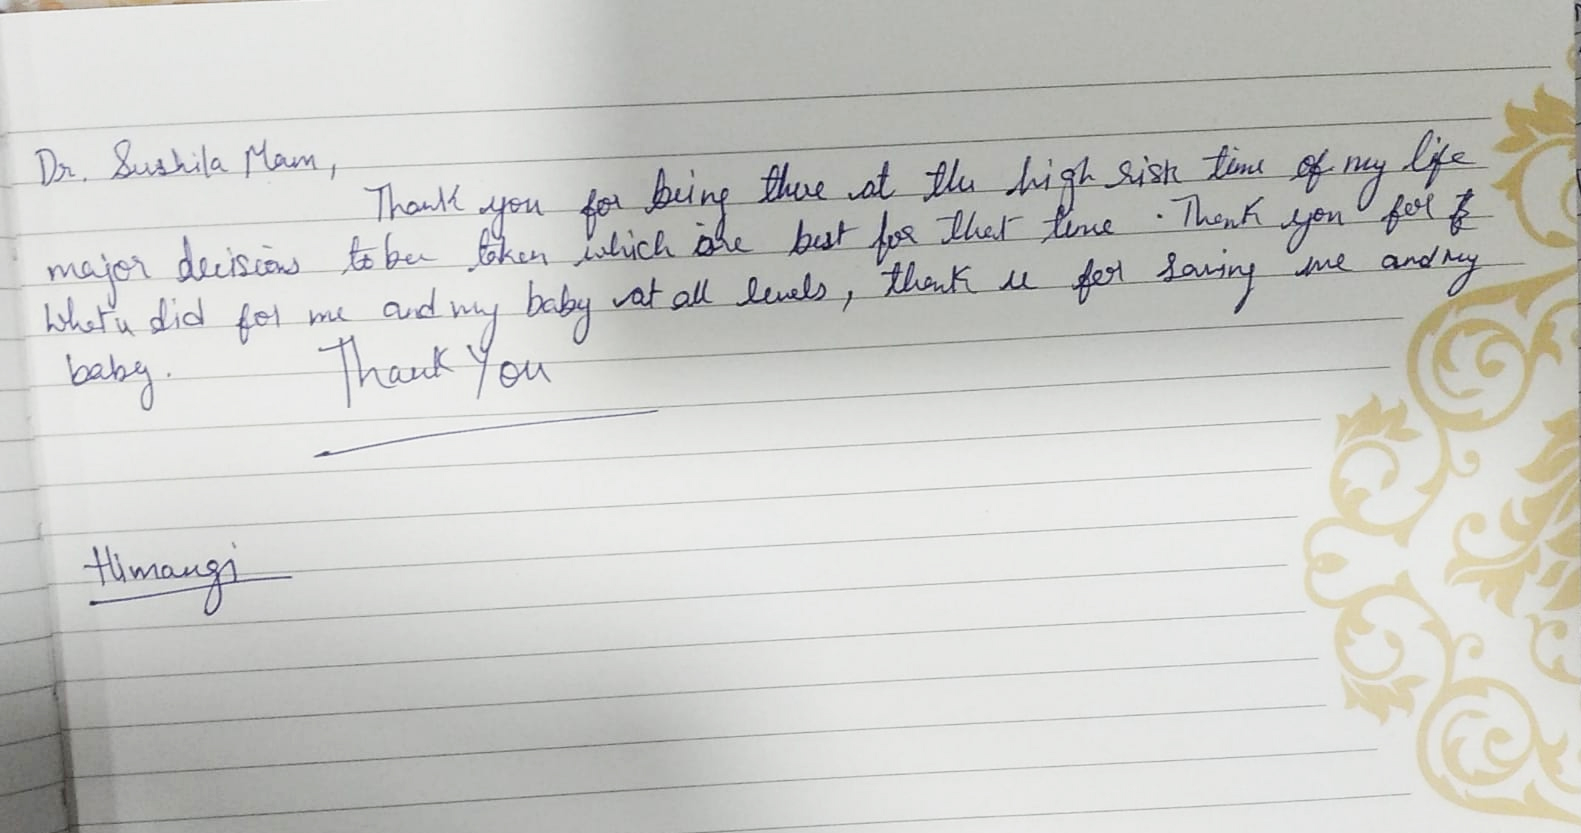 Dr. Sushila Mam,
Thank you for being there at the high risk time of my life
major decisions to be taken which are best for that time. Thank you for
What u did for me and my baby at all levels, thank u for saving me and my
baby. Thank You
Himangi